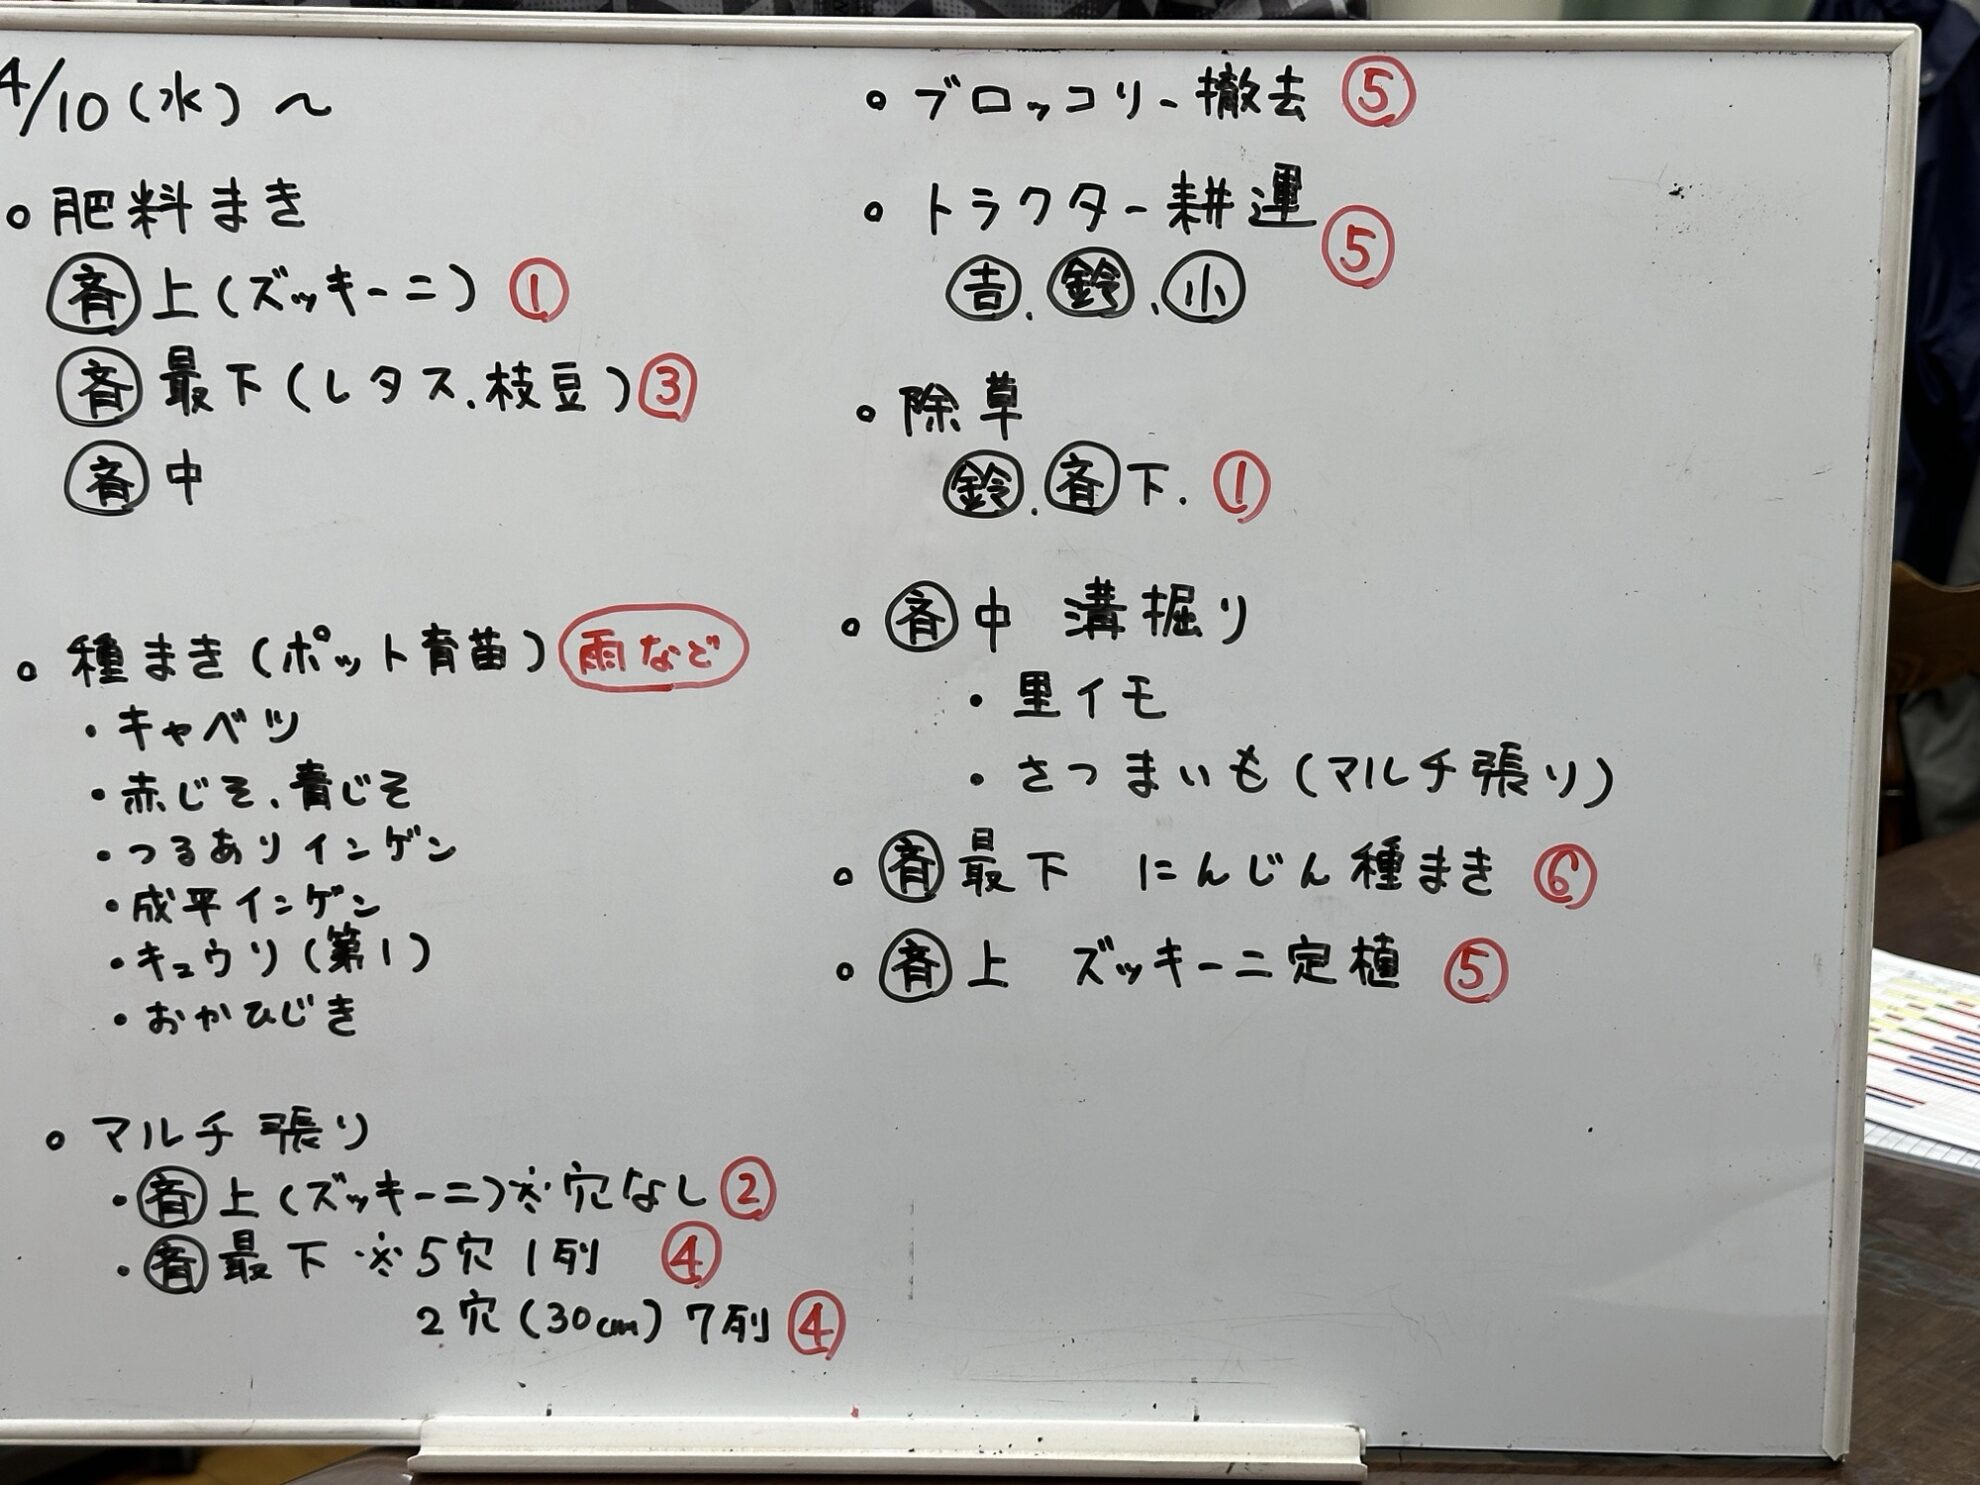 4/10(水)～
○肥料まき
㊮斉上(ズッキーニ)①
斉最下(レタス、枝豆)③
斉中
○種まき(ポット育苗)雨など
・キャベツ
・赤じそ、青じそ
・つるありインゲン
・成平インゲン
・キュウリ(第1)
・おかひじき
○マルチ張り
・斉上(ズッキーニ)※穴なし②
・斉最下※5穴1列④
2穴(30cm)7列④
○ブロッコリー撤去⑤
○トラクター耕運⑤
吉、鈴、小
○除草
鈴、斉下、①
○斉中 溝掘り
・里イモ
・さつまいも(マルチ張り)
○斉最下 にんじん種まき⑥
○斉上 ズッキーニ定植⑤